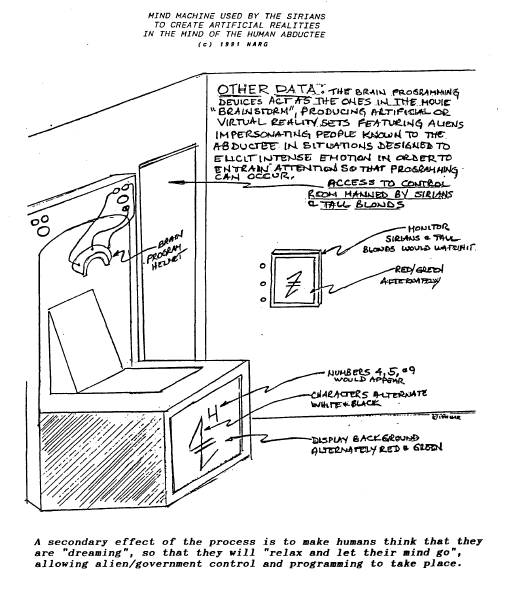 MIND MACHINE USED BY THE SIRIANS
TO CREATE ARTIFICIAL REALITIES
IN THE MIND OF THE HUMAN ABDUCTEE
(c) 1991 NARG
OTHER DATA: THE BRAIN PROGRAMMING
DEVICES ACT AS THE ONES IN THE MOVIE
"BRAINSTORM", PRODUCING ARTIFICIAL OR
VIRTUAL REALITY SETS FEATURING ALIENS
IMPERSONATING PEOPLE KNOWN TO THE
ABDUCTEE IN SITUATIONS DESIGNED TO
ELICIT INTENSE EMOTION IN ORDER TO
ENTRAIN ATTENTION SO THAT PROGRAMMING
CAN OCCUR.
ACCESS TO CONTROL
ROOM MANNED BY SIRIANS
& TALL BLONDS
BRAIN
PROGRAM
HELMET
MONITOR
SIRIANS & TALL
BLONDS WOULD WATCH IT
RED/GREEN
ALTERNATELY
NUMBERS 4, 5, & 9
WOULD APPEAR
CHARACTERS ALTERNATE
WHITE & BLACK
4
DISPLAY BACKGROUND
ALTERNATELY RED & GREEN
A secondary effect of the process is to make humans think that they
are "dreaming", so that they will "relax and let their mind go",
allowing alien/government control and programming to take place.